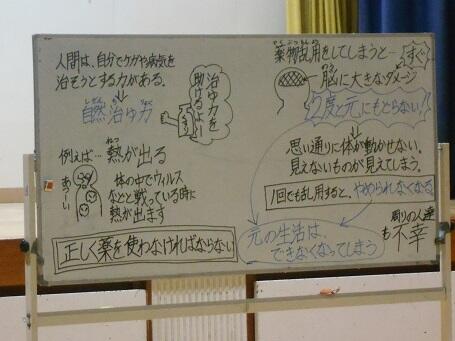 人間は、自分でケガや病気を
治そうとする力がある。
自然治ゆ力
治ゆ力を
助けるよー
例えば…熱が出る
ねつ
あつーい
体の中でウィルス
などと戦っている時に
熱が出ます
正しく薬を使わなければならない
薬物乱用をしてしまうと…すぐ
脳に大きなダメージ
2度と元にもどらない!
思い通りに体が動かせない。
見えないものが見えてしまう。
1回でも乱用すると、やめられなくなる
元の生活は、
できなくなってしまう
周りの人達
も不幸